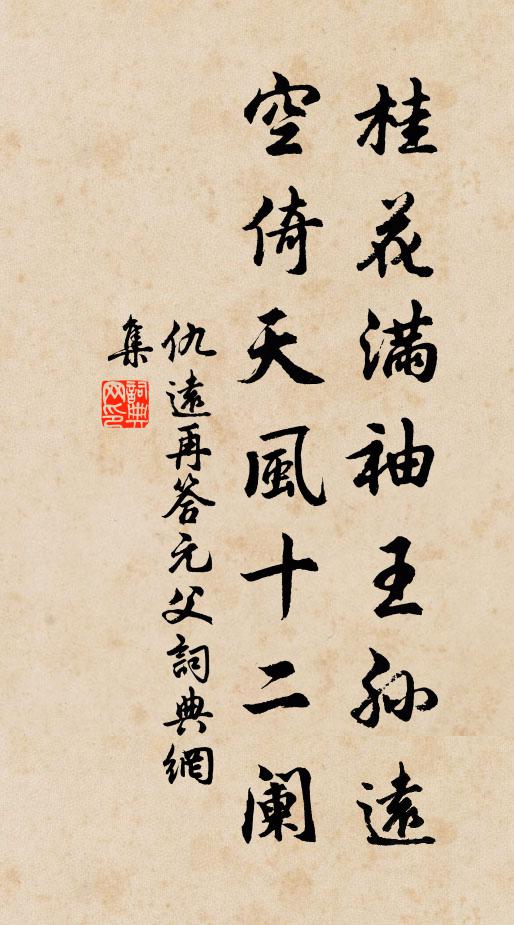 桂花滿袖王孫遠
空倚天風十二闌
仇遠再答元父詞典網
集
詞典
网印